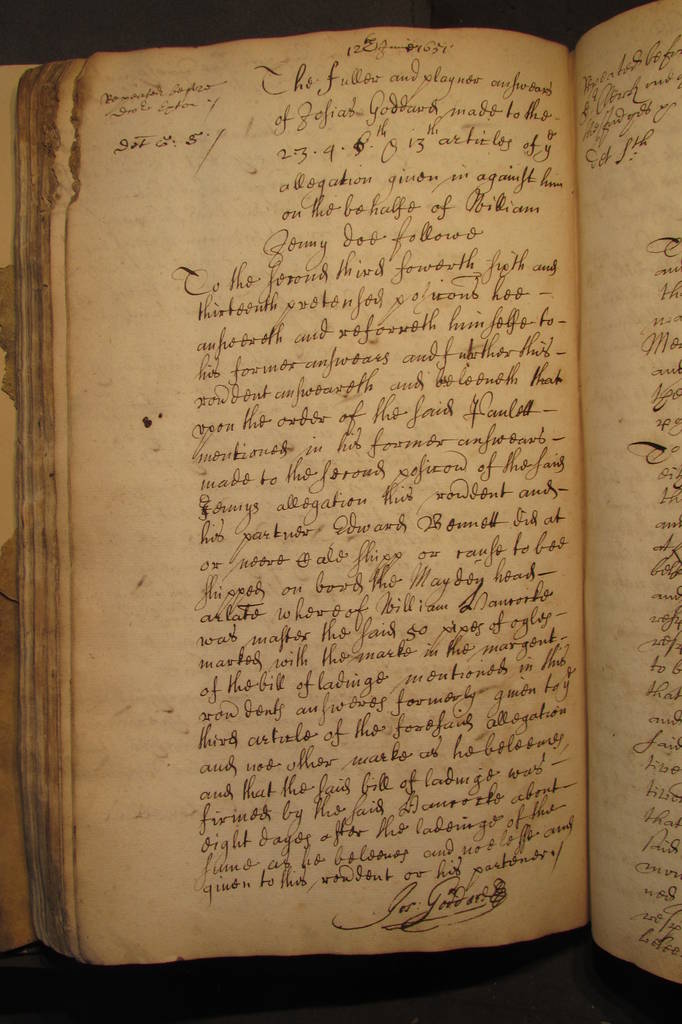 12th June 1651.
Repeated before
doctor
The fuller and playner answears
of Josias Goddard made to the
2. 3. 4. 6.th & 13th articles of ye
allegation given in against him
on the behalfe of William
Jenny doe followe
To the second third fowerth sixth and
thirteenth pretensed posicons hee
answereth and referreth himselfe to
his former answears and further this
rondent answeareth and beleeveth that
upon the order of the said Paulett
mentioned in his former answears
made to the second posicon of the said
Jennys allegation this rondent and
his partner Edward Bennett did at
or neere Cales shipp or cause to bee
shipped on bord the Mayden head
arlate whereof William Hancocke
was master the said 50 pipes of oyles
marked with the marke in the margent
of the bill of ladinge mentioned in this
rondents answeres formerly given to ye
third article of the foresaid allegation
and noe other marke as he beleeves,
and that the said bill of ladinge was
firmed by the said Hancocke about
eight dayes after the ladeinge of the
same as he beleeves and noe lesse and
given to this rendent or his partener
Jos: Goddard
Repeated before
To
and
the
Mer
and
the
To
the
and
and
to b
that
and
said
that
said